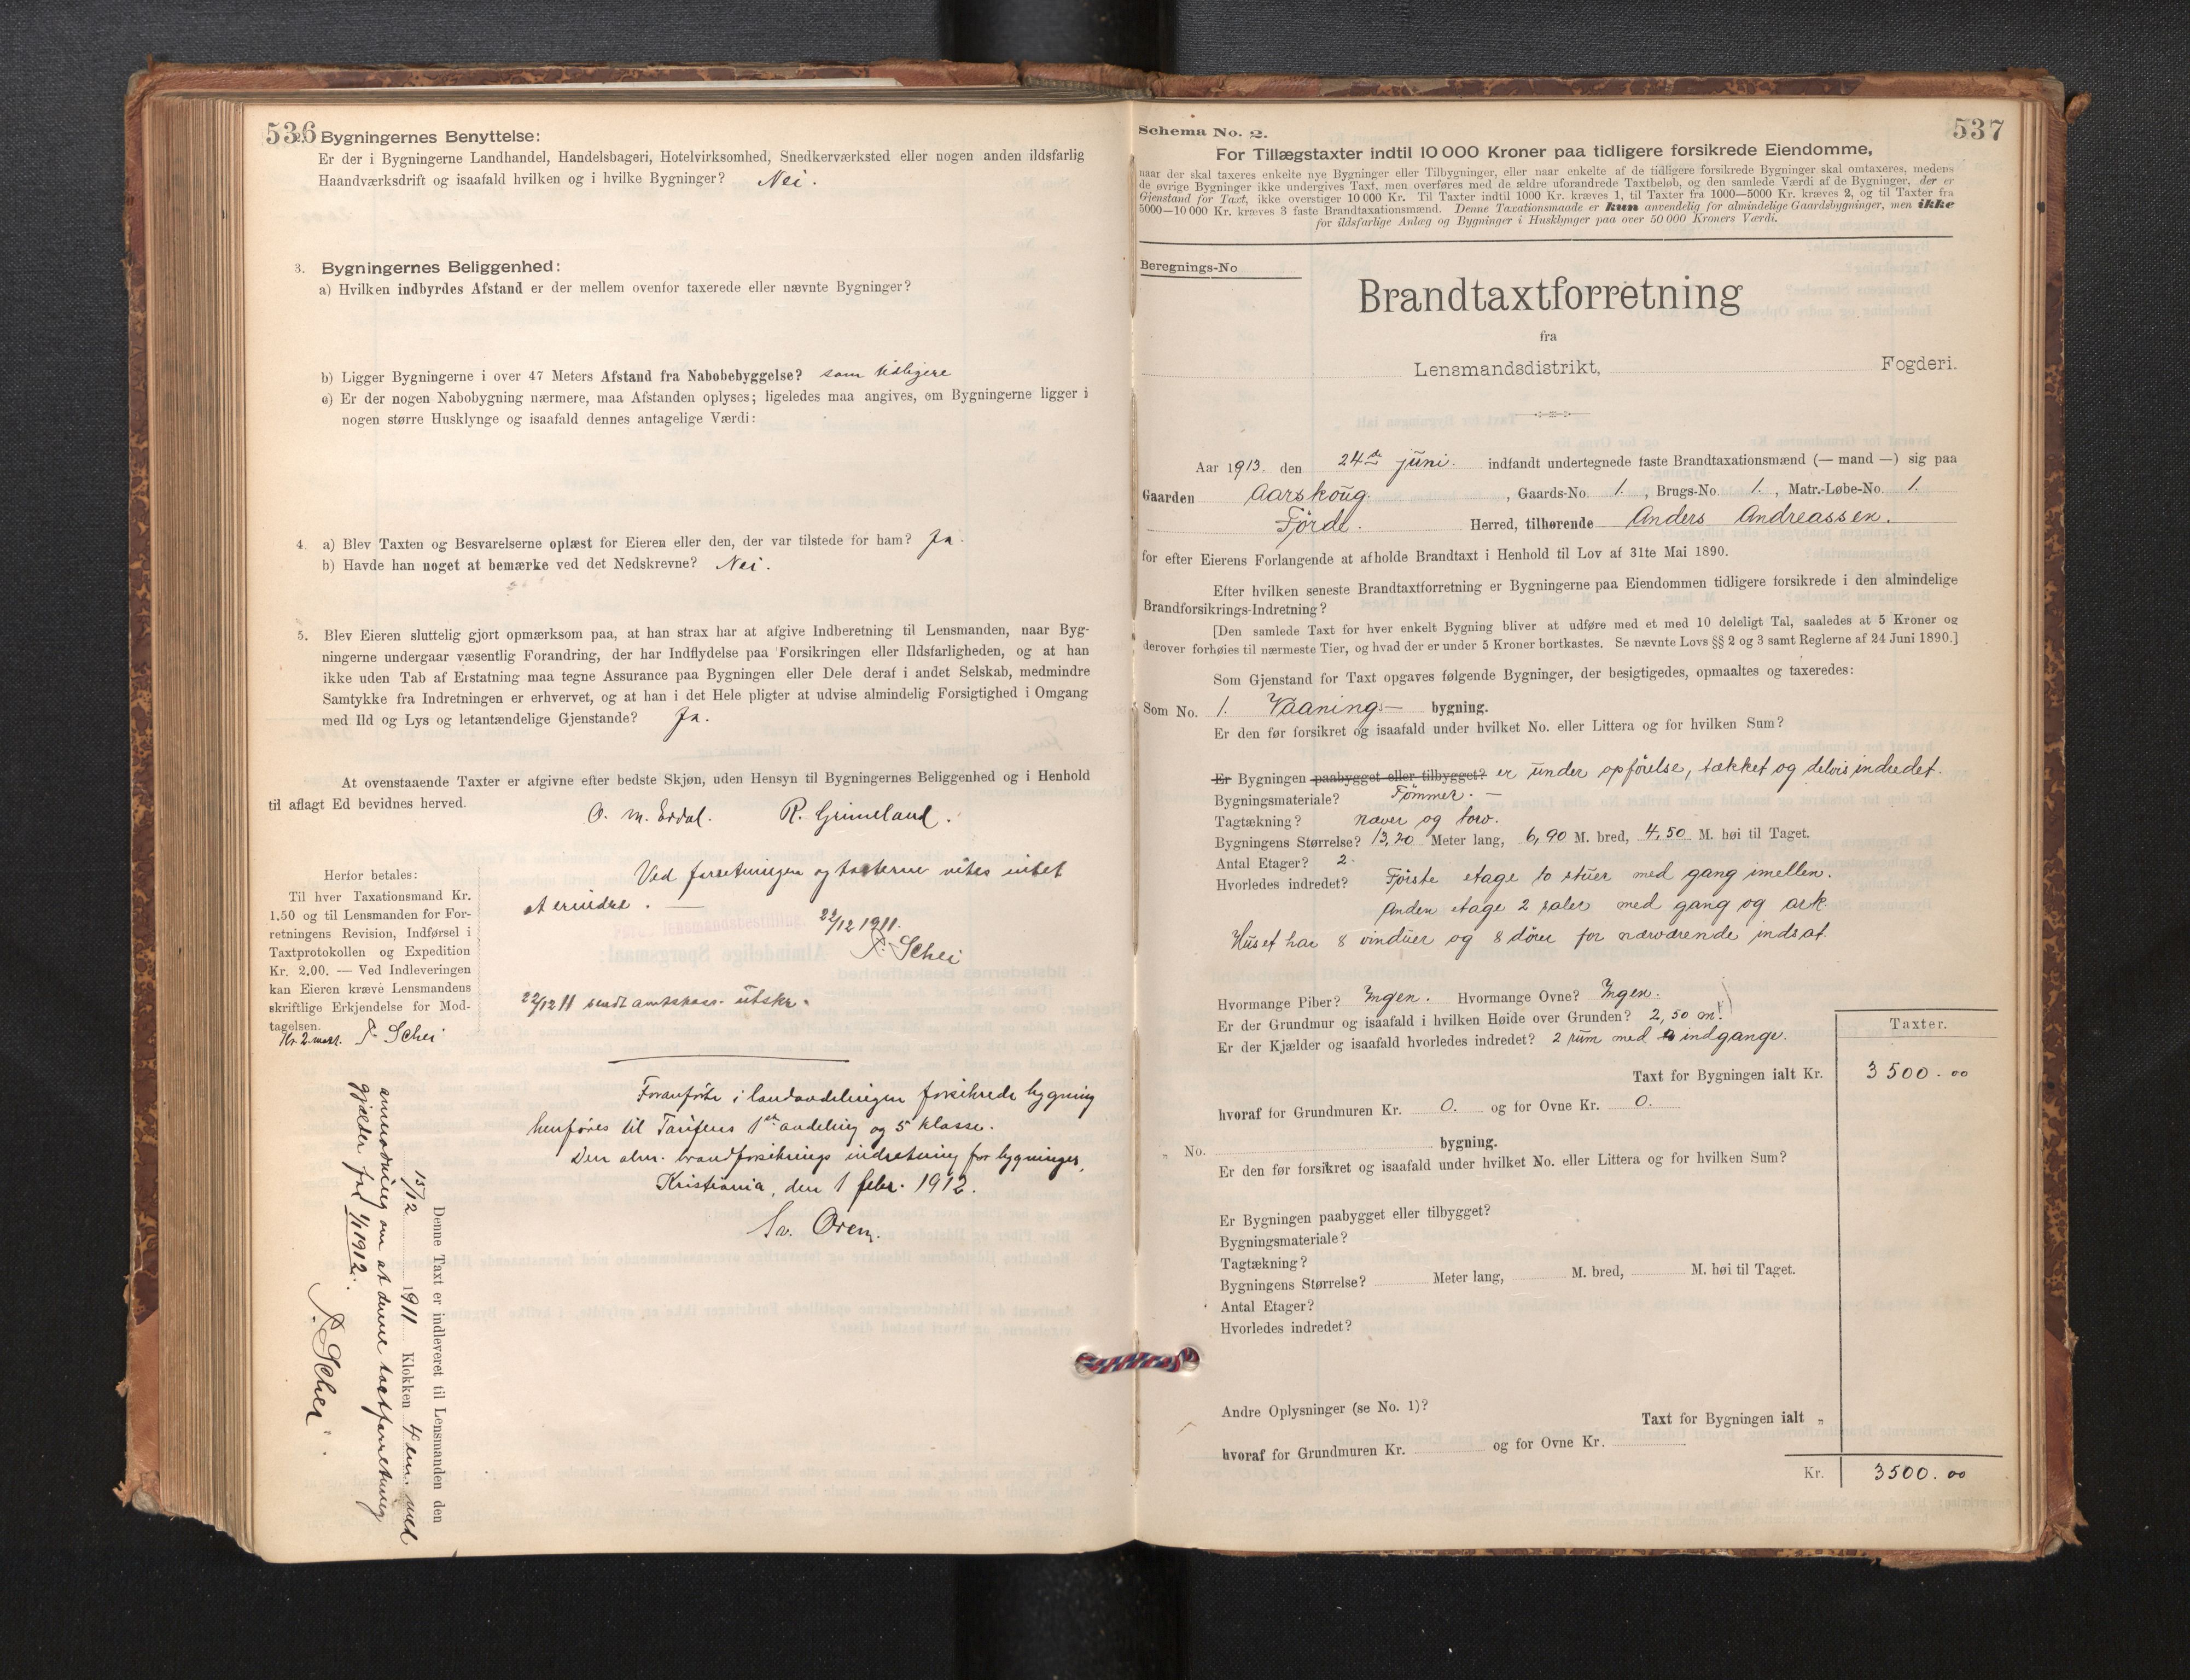 536
2. Bygningernes Benyttelse:
Er der i Bygningerne Landhandel, Handelsbageri, Hotelvirksomhed, Snedkerværksted eller nogen anden ildsfarlig
Haandværksdrift og isaafald hvilken og i hvilke Bygninger? Nei.
3. Bygningernes Beliggenhed:
a) Hvilken indbyrdes Afstand er der mellem ovenfor taxerede eller nævnte Bygninger?
b) Ligger Bygningerne i over 47 Meters Afstand fra Nabobebyggelse? som tidligere
c) Er der nogen Nabobygning nærmere, maa Afstanden oplyses; ligeledes maa angives, om Bygningerne ligger i
nogen større Husklynge og isaafald dennes antagelige Værdi:
4. a) Blev Taxten og Besvarelserne oplæst for Eieren eller den, der var tilstede for ham? Ja.
b) Havde han noget at bemærke ved det Nedskrevne? Nei.
5. Blev Eieren sluttelig gjort opmærksom paa, at han strax har at afgive Indberetning til Lensmanden, naar Byg-
ningerne undergaar væsentlig Forandring, der har Indflydelse paa Forsikringen eller Ildsfarligheden, og at han
ikke uden Tab af Erstatning maa tegne Assurance paa Bygningen eller Dele deraf i andet Selskab, medmindre
Samtykke fra Indretningen er erhvervet, og at han i det Hele pligter at udvise almindelig Forsigtighed i Omgang
med Ild og Lys og letantændelige Gjenstande? Ja.
At ovenstaaende Taxter er afgivne efter bedste Skjøn, uden Hensyn til Bygningernes Beliggenhed og i Henhold
til aflagt Ed bevidnes herved.
O. M. Erdal. R. Grimeland.
Ved forretningen og taxterne vites intet
at erindre. —
Førde lensmandsbestilling, 22/12 1911.
P. Schei
22/12 11 sendt amtskass. utskr.
Herfor betales:
Til hver Taxationsmand Kr.
1.50 og til Lensmanden for For-
retningens Revision, Indførsel i
Taxtprotokollen og Expedition
Kr. 2.00. — Ved Indleveringen
kan Eieren kræve Lensmandens
skriftlige Erkjendelse for Mod-
tagelsen.
Kr. 2 mott. P. Schei
Foranførte i landavdelingen forsikrede bygning
henføres til Tarifens 1ste avdeling og 5 klasse.
Den alm. brandforsikrings indretning for bygninger,
Kristiania, den 1 febr. 1912.
Sv. Oren.
Denne Taxt er indleveret til Lensmanden den
15/12 1911 Klokken 4 em. med
anmodning om at denne taxtforretning
gjælder fra 1/1 1912.
P. Schei.
537
Schema No. 2.
For Tillægstaxter indtil 10 000 Kroner paa tidligere forsikrede Eiendomme,
naar der skal taxeres enkelte nye Bygninger eller Tilbygninger, eller naar enkelte af de tidligere forsikrede Bygninger skal omtaxeres, medens
de øvrige Bygninger ikke undergives Taxt, men overføres med de ældre uforandrede Taxtbeløb, og den samlede Værdi af de Bygninger, der er
Gjenstand for Taxt, ikke overstiger 10 000 Kr. Til Taxter indtil 1000 Kr. kræves 1, til Taxter fra 1000—5000 Kr. kræves 2, og til Taxter fra
5000—10 000 Kr. kræves 3 faste Brandtaxationsmænd. Denne Taxationsmaade er kun anvendelig for almindelige Gaardsbygninger, men ikke
for ildsfarlige Anlæg og Bygninger i Husklynger paa over 50 000 Kroners Værdi.
Beregnings-No
Brandtaxtforretning
fra
Lensmandsdistrikt, Fogderi.
Aar 1913. den 24de juni. indfandt undertegnede faste Brandtaxationsmænd (— mand —) sig paa
Gaarden Aarskoug, Gaards-No. 1., Brugs-No. 1., Matr.-Løbe-No. 1.
Førde. Herred, tilhørende Anders Andreassen.
for efter Eierens Forlangende at afholde Brandtaxt i Henhold til Lov af 31te Mai 1890.
Efter hvilken seneste Brandtaxtforretning er Bygningerne paa Eiendommen tidligere forsikrede i den almindelige
Brandforsikrings-Indretning?
[Den samlede Taxt for hver enkelt Bygning bliver at udføre med et med 10 deleligt Tal, saaledes at 5 Kroner og
derover forhøies til nærmeste Tier, og hvad der er under 5 Kroner bortkastes. Se nævnte Lovs §§ 2 og 3 samt Reglerne af 24 Juni 1890.]
Som Gjenstand for Taxt opgaves følgende Bygninger, der besigtigedes, opmaaltes og taxeredes:
Som No. 1. Vaanings— bygning.
Er den før forsikret og isaafald under hvilket No. eller Littera og for hvilken Sum?
Er Bygningen paabygget eller tilbygget? er under opførelse, tækket og delvis indredet.
Bygningsmateriale? Tømmer. —
Tagtækning? næver og torv.
Bygningens Størrelse? 13,20 Meter lang, 6,90 M. bred, 4,50 M. høi til Taget.
Antal Etager? 2
Hvorledes indredet? Første etage to stuer med gang imellen.
Anden etage 2 saler med gang og ark.
Huset har 8 vinduer og 8 dører for nærværende indsat.
Hvormange Piber? Ingen. Hvormange Ovne? Ingen.
Er der Grundmur og isaafald i hvilken Høide over Grunden? 2,50 m.
Er der Kjælder og isaafald hvorledes indredet? 2 rum med indgange.
Taxter.
Taxt for Bygningen ialt Kr. 3500.00
hvoraf for Grundmuren Kr. 0. og for Ovne Kr. 0.
„ No. bygning.
Er den før forsikret og isaafald under hvilket No. eller Littera og for hvilken Sum?
Er Bygningen paabygget eller tilbygget?
Bygningsmateriale?
Tagtækning?
Bygningens Størrelse? Meter lang, M. bred, M. høi til Taget.
Antal Etager?
Hvorledes indredet?
Andre Oplysninger (se No. 1)?
Taxt for Bygningen ialt „
hvoraf for Grundmuren Kr. og for Ovne Kr.
Kr. 3500.00